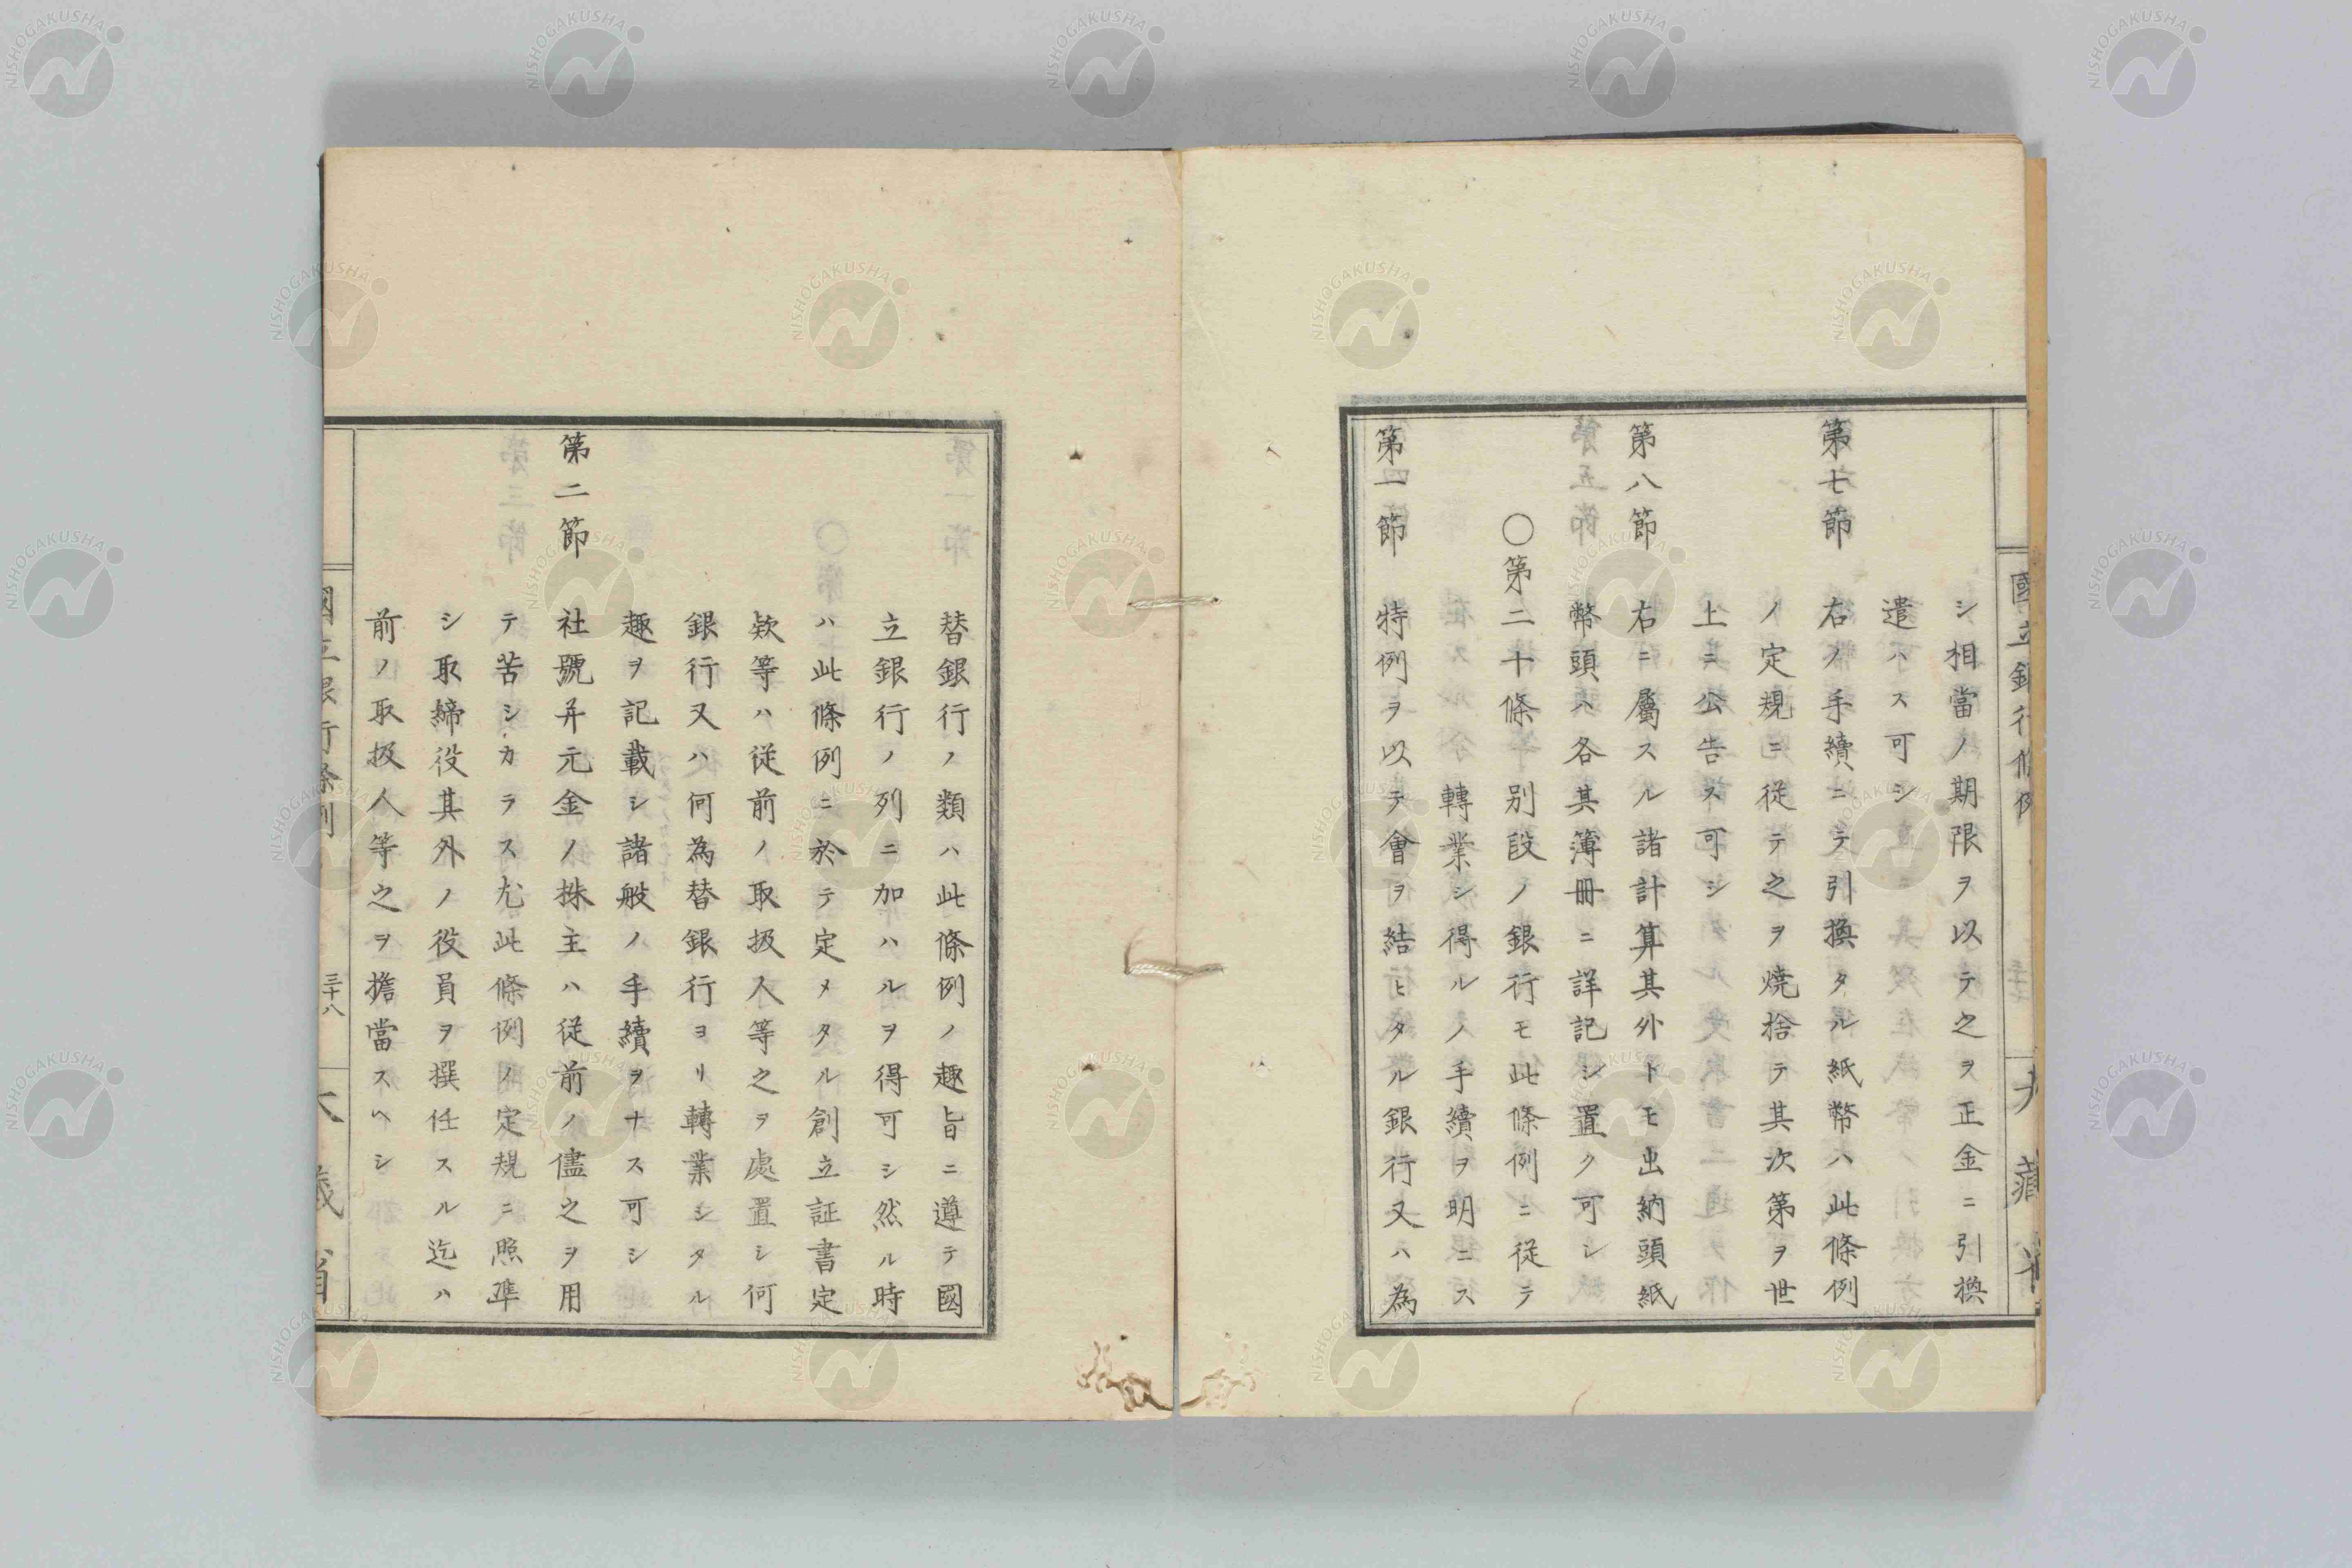 シ相當ノ期限ヲ以テ之ヲ正金ニ引換
遣ハス可シ
第七節 右ノ手續ニテ引換タル紙幣ハ此條例
ノ定規ニ従テ之ヲ焼捨テ其次第ヲ世
上ニ公告ス可シ
第八節 右ニ屬スル諸計算其外トモ出納頭紙
幣頭ハ各其簿冊ニ詳記シ置ク可シ
〇第二十條 別段ノ銀行モ此條例ニ従テ
轉業シ得ルノ手續ヲ明ニス
第一節 特例ヲ以テ會ヲ結ヒタル銀行又ハ為
替銀行ノ類ハ此條例ノ趣旨ニ遵テ國
立銀行ノ列ニ加ハルヲ得可シ然ル時
ハ此條例ニ於テ定メタル創立証書定
欵等ハ従前ノ取扱人等之ヲ處置シ何
銀行又ハ何為替銀行ヨリ轉業シタル
趣ヲ記載シ諸般ノ手續ヲナス可シ
第二節 社號并元金ノ株主ハ従前ノ儘之ヲ用
テ苦シカラス尤此條例ノ定規ニ照準
シ取締役其外ノ役員ヲ撰任スル迄ハ
前ノ取扱人等之ヲ擔當スヘシ
國立銀行條例
三十八
大藏省
NISHOGAKUSHA